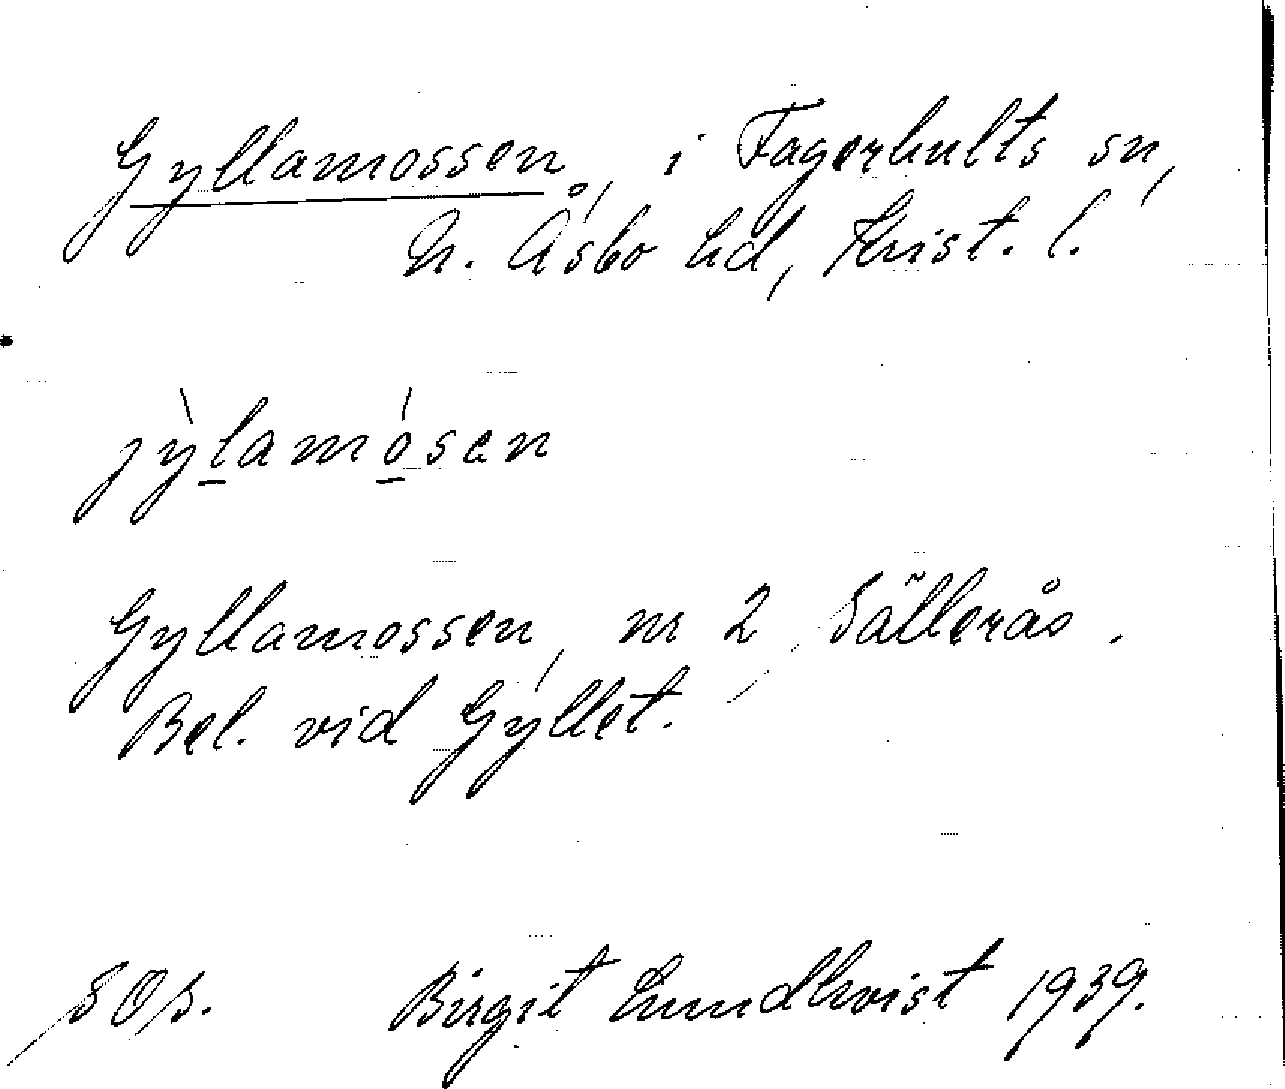 Gyllamossen, i Fagerhults sn,
N. Åsbo hd, Krist. l.
jỳ̱lamó̱sen
Gyllamossen, nr 2 Sällerås.
Bel. vid Gyllet.
Birgit Lundkvist 1939.